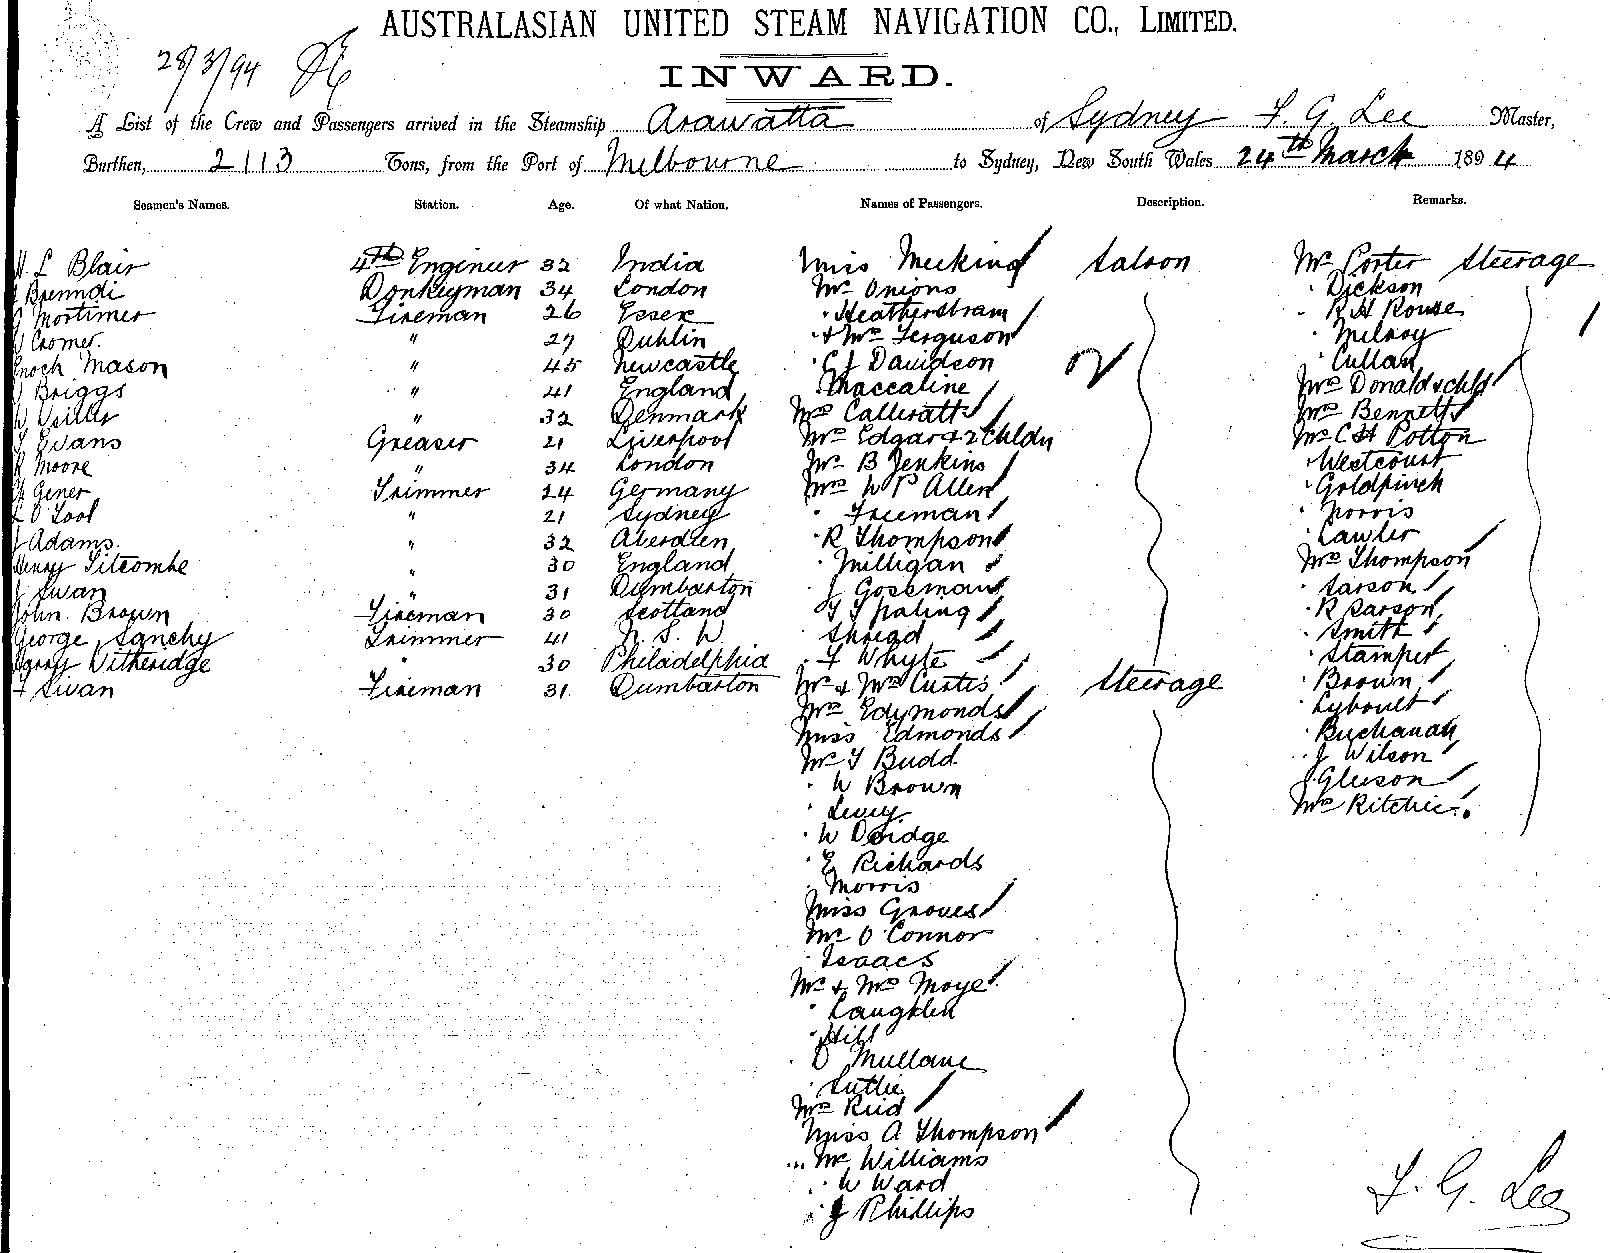 AUSTRALASIAN UNITED STEAM NAVIGATION CO., LIMITED.
28/3/94
INWARD.
A List of the Crew and Passengers arrived in the Steamship Arawatta of Sydney F. G. Lee Master,
Burthen, 2113 Tons, from the Port of Melbourne to Sydney, New South Wales 24th March 1894
Seamen's Names. Station. Age. Of what Nation. Names of Passengers. Description. Remarks.
L Blair 4th Engineer 32 India Miss Meeking Saloon Mr Porter Steerage
Brenndi Donkeyman 34 London Mr Onions " Dickson
Mortimer Fireman 26 Essex " Heatherstram " R H Rouse
Cromer " 27 Dublin " & Mrs Ferguson " Milroy
Enoch Mason " 45 Newcastle " C J Davidson " Cullan
Briggs " 41 England Maccaline Mrs Donald & chld
" 32 Denmark Mrs Calleratt Mrs Bennett
Evans Greaser 21 Liverpool Mrs Edgar & 2 Chldn Mr C H Potton
Moore " 34 London Mr B Jenkins " Westcourt
Gener Trimmer 24 Germany Mrs W P Allen " Goldfinch
O Tool " 21 Sydney " Freeman " Norris
J Adams " 32 Aberdeen " R Thompson " Lawler
Henry Titcombe " 30 England " Milligan Mrs Thompson
J Swan " 31 Dumbarton " J Gossman " Sarson
John Brown Fireman 30 Scotland " Paling " R Sarson
George Sanchy Trimmer 41 N. S. W " Shread " Smith
Harry Witheridge " 30 Philadelphia " F Whyte " Stamper
F Swan Fireman 31 Dumbarton Mr & Mrs Curtis Steerage " Brown
Mrs Edymonds " Lyboult
Miss Edmonds " Buchanan
Mr T Budd " J Wilson
" W Brown " J Gleeson
" Levy Mrs Ritchie
" W Doidge
" E Richards
" Morris
Miss Groves
Mr O'Connor
" Isaacs
Mr & Mrs Moye
" Laughlen
" Hill
" O Mullane
" Suttie
Mrs Reid
Miss A Thompson
Mr Williams
" W Ward
" J Phillips
F. G. Lee